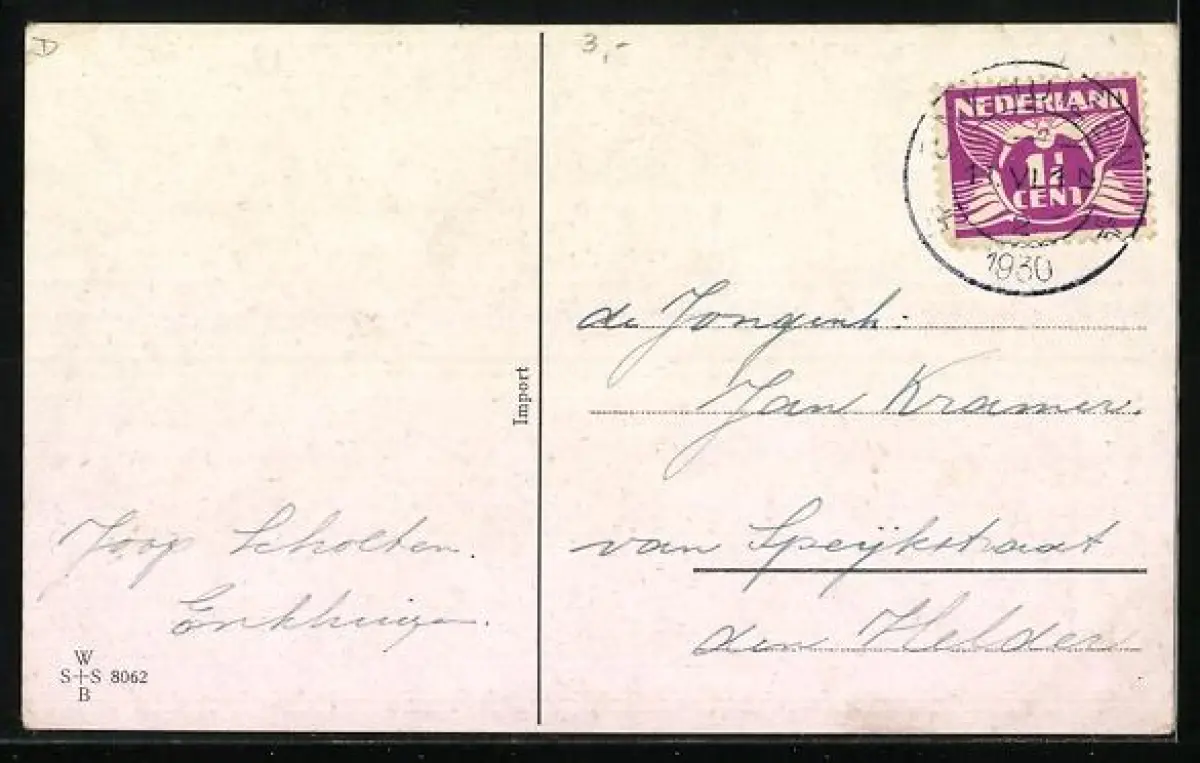 D
3,-
NEDERLAND
1½
CENT
1930
de Jongenh.
Jan Kramer.
van Speijkstraat
den Helder
Import
Joop Scholten.
Enkhuizen.
W
S+S 8062
B